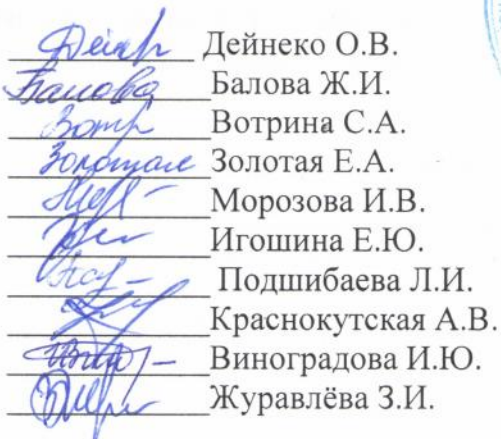 Дейнеко О.В.
Балова Ж.И.
Вотрина С.А.
Золотая Е.А.
Морозова И.В.
Игошина Е.Ю.
Подшибаева Л.И.
Краснокутская А.В.
Виноградова И.Ю.
Журавлёва З.И.